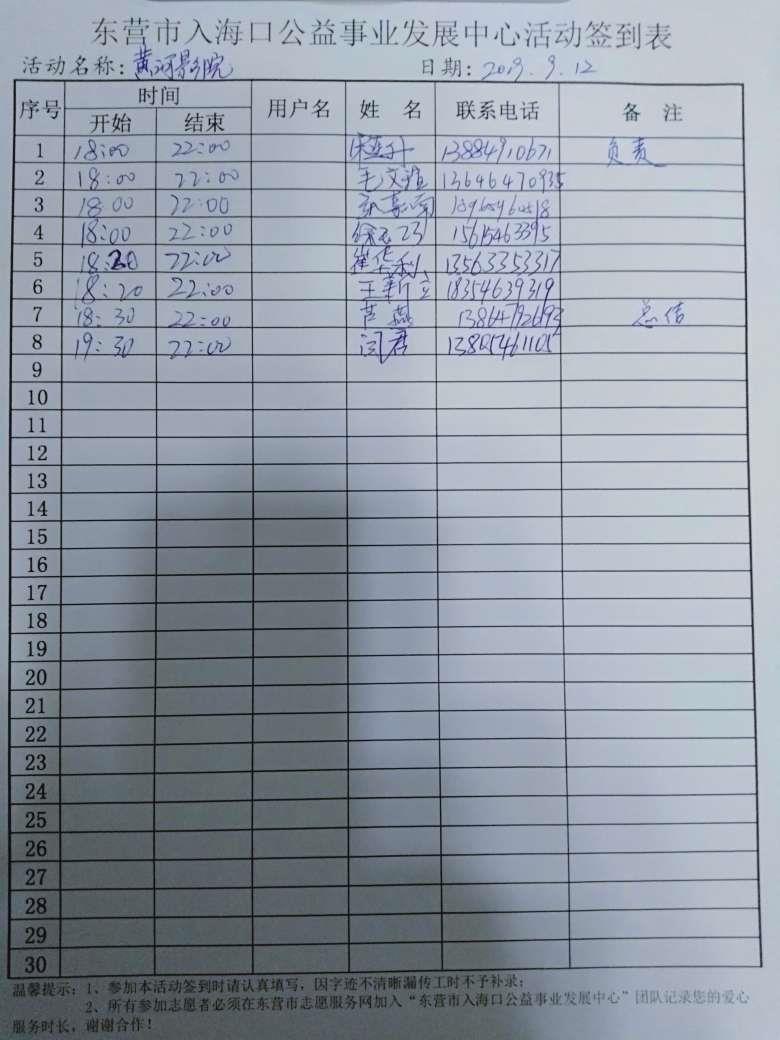 东营市入海口公益事业发展中心活动签到表
活动名称：黄河影院 日期：2019.9.12
序号 时间 用户名 姓 名 联系电话 备 注
开始 结束
1 18:00 22:00 13884910671 负责
2 18:00 22:00 毛文 13646470935
3 18:00 22:00
4 18:00 22:00 15615463395
5 18:20 22:00 崔华利 13563353317
6 18:20 22:00 王新立 18354639319
7 18:30 22:00 芦燕 13864792693 总结
8 19:30 22:00 闫君 13805461105
9
10
11
12
13
14
15
16
17
18
19
20
21
22
23
24
25
26
27
28
29
30
温馨提示：1、参加本活动签到时请认真填写，因字迹不清晰漏传工时不予补录；
2、所有参加志愿者必须在东营市志愿服务网加入“东营市入海口公益事业发展中心”团队记录您的爱心
服务时长，谢谢合作！